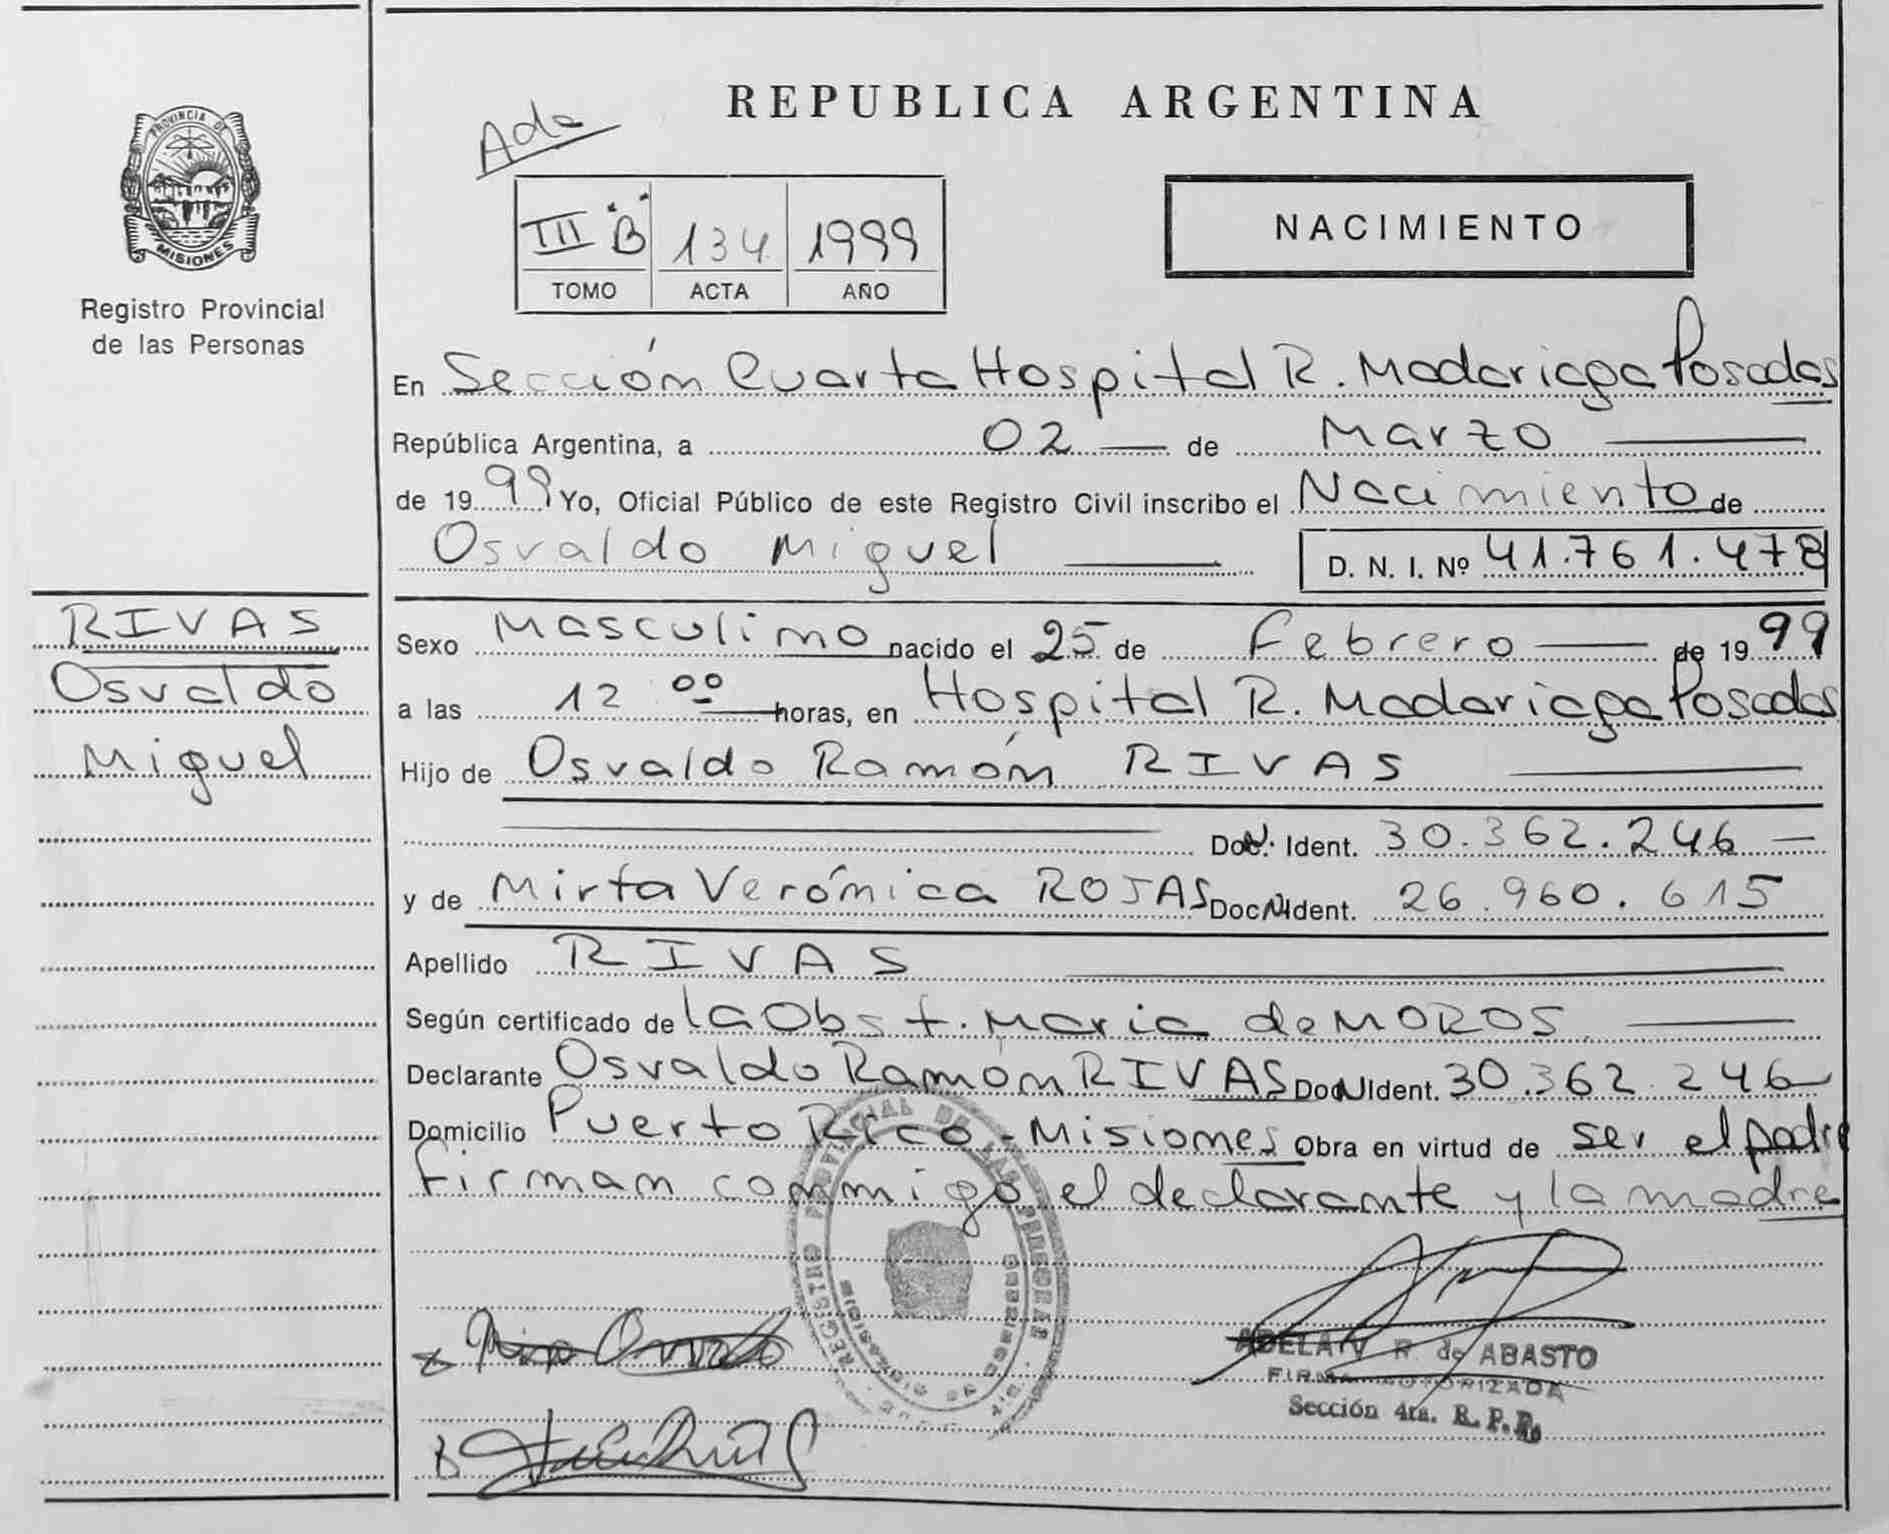 PROVINCIA DE
MISIONES
Registro Provincial
de las Personas
RIVAS
Osvaldo
Miguel
REPUBLICA ARGENTINA
III "B" 134 1999
TOMO ACTA AÑO
NACIMIENTO
En Sección Cuarta Hospital R. Madariaga Posadas
República Argentina, a 02 — de Marzo —
de 1999 Yo, Oficial Público de este Registro Civil inscribo el Nacimiento de
Osvaldo Miguel — D. N. I. Nº 41.761.478
Sexo Masculino nacido el 25 de Febrero — de 1999
a las 12 00 horas, en Hospital R. Madariaga Posadas
Hijo de Osvaldo Ramón RIVAS —
Doc. Ident. 30.362.246 —
y de Mirta Verónica ROJAS Doc. Ident. 26.960.615
Apellido RIVAS —
Según certificado de la Obst. Maria de MOROS —
Declarante Osvaldo Ramón RIVAS Doc. Ident. 30.362.246
Domicilio Puerto Rico - Misiones Obra en virtud de ser el padre
firman conmigo el declarante y la madre
ADELA R. de ABASTO
FIRMA AUTORIZADA
Sección 4ta. R. P. P.